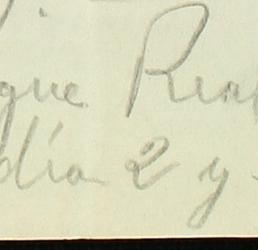 que Rea
día 2 y